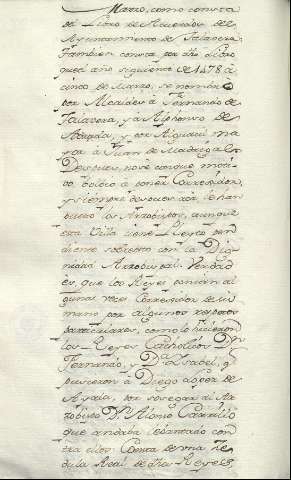 Marzo, como consta
del Libro de Acuerdos del
Ayuntamiento de Talavera.
Tambien consta por dho Libro
que el año siguiente de 1478 à
cinco de Marzo, se nombrò
por Alcaldes à Fernando de
Talavera, y à Alphonso de
y por Alguacil ma
yor à Juan de Madrigal
Despues, no se conque moti
vo bolviò à poner Corregidor,
y siempre despues acà, le han
puesto los Arzobispos, aunque
esta Villa tiene Pleyto pen
diente sobre esto con la Dig
nidad Arzobispal. Verdad
es, que los Reyes ponian al
gunas veces Corregidor de su
mano por algunos respetos
particulares, como lo hicieron
los Reyes Catholicos Dn
Fernando, y Da. Isabel, q
pusieron à Diego Lopez de
Ayala, por sosegar al Ar
zobispo Dn Alonso Carrillo
que andaba lebantado con
tra ellos. Consta de una Ze
dula Real de dhos Reyes